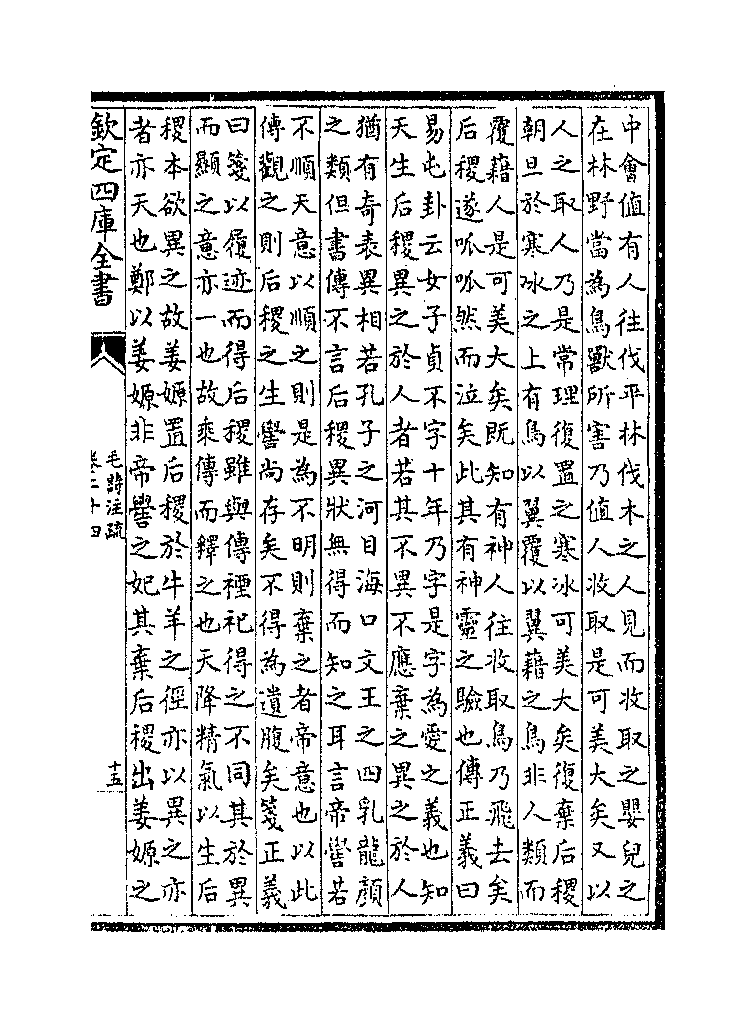 中會値有人往伐平林伐木之人見而收取之嬰兒之
在林野當為鳥獸所害乃值人收取是可美大矣又以
人之取人乃是常理復置之寒冰可美大矣復棄后稷
朝旦於寒冰之上有鳥以翼覆以翼藉之鳥非人類而
覆藉人是可美大矣既知有神人往收取鳥乃飛去矣
后稷遂呱呱然而泣矣此其有神靈之驗也傳正義曰
易屯卦云女子貞不字十年乃字是字為愛之義也知
天生后稷異之於人者若其不異不應棄之異之於人
猶有奇表異相若孔子之河目海口文王之四乳龍顏
之類但書傳不言后稷異狀無得而知之耳言帝嚳若
不順天意以順之則是為不明則棄之者帝意也以此
傳觀之則后稷之生嚳尚存矣不得為遺腹矣箋正義
曰箋以履迹而得后稷雖與傳禋祀得之不同其於異
而顯之意亦一也故乘傳而釋之也天降精氣以生后
稷本欲異之故姜嫄置后稷於牛羊之徑亦以異之亦
者亦天也鄭以姜嫄非帝嚳之妃其棄后稷出姜嫄之
欽定四庫全書
毛詩注疏
卷二十四
十五